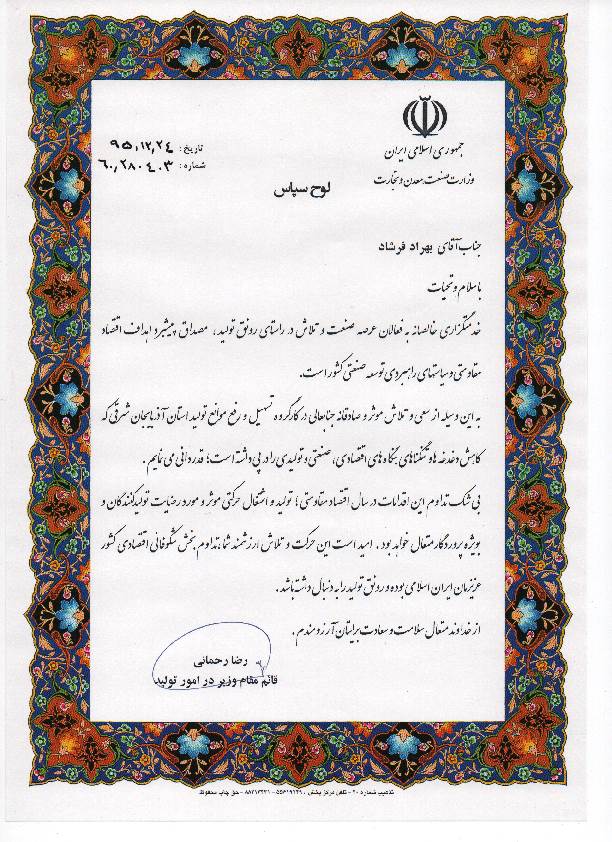 جمهوری اسلامی ایران
وزارت صنعت، معدن و تجارت
تاریخ : ۹۵،۱۲،۲۴
شماره : ۶۰،۲۸۰۴۰۳
لوح سپاس
جناب آقای بهراد فرشاد
با سلام و تحیات
خدمتگزاری خالصانه به فعالان عرصه صنعت و تلاش در راستای رونق تولید ، مصداق پیشبرد اهداف اقتصاد
مقاومتی و سیاستهای راهبردی توسعه صنعتی کشور است.
به این وسیله از سعی و تلاش موثر و صادقانه جنابعالی در کارگروه تسهیل و رفع موانع تولید استان آذربایجان شرقی که
کاهش دغدغه ها و تنگناهای بنگاه های اقتصادی، صنعتی و تولیدی را در پی داشته است؛ قدردانی می نمایم .
بی شک تداوم این اقدامات در سال اقتصاد مقاومتی؛ تولید و اشتغال حرکتی موثر و مورد رضایت تولیدکنندگان و
بویژه پروردگار متعال خواهد بود . امید است این حرکت و تلاش ارزشمند شما، تداوم بخش شکوفائی اقتصادی کشور
عزیزمان ایران اسلامی بوده و رونق تولید را به دنبال داشته باشد .
از خداوند متعال سلامت و سعادت برایتان آرزومندم .
رضا رحمانی
قائم مقام وزیر در امور تولید
تذهیب شماره ۲۰ - تلفن مرکز پخش : - حق چاپ محفوظ